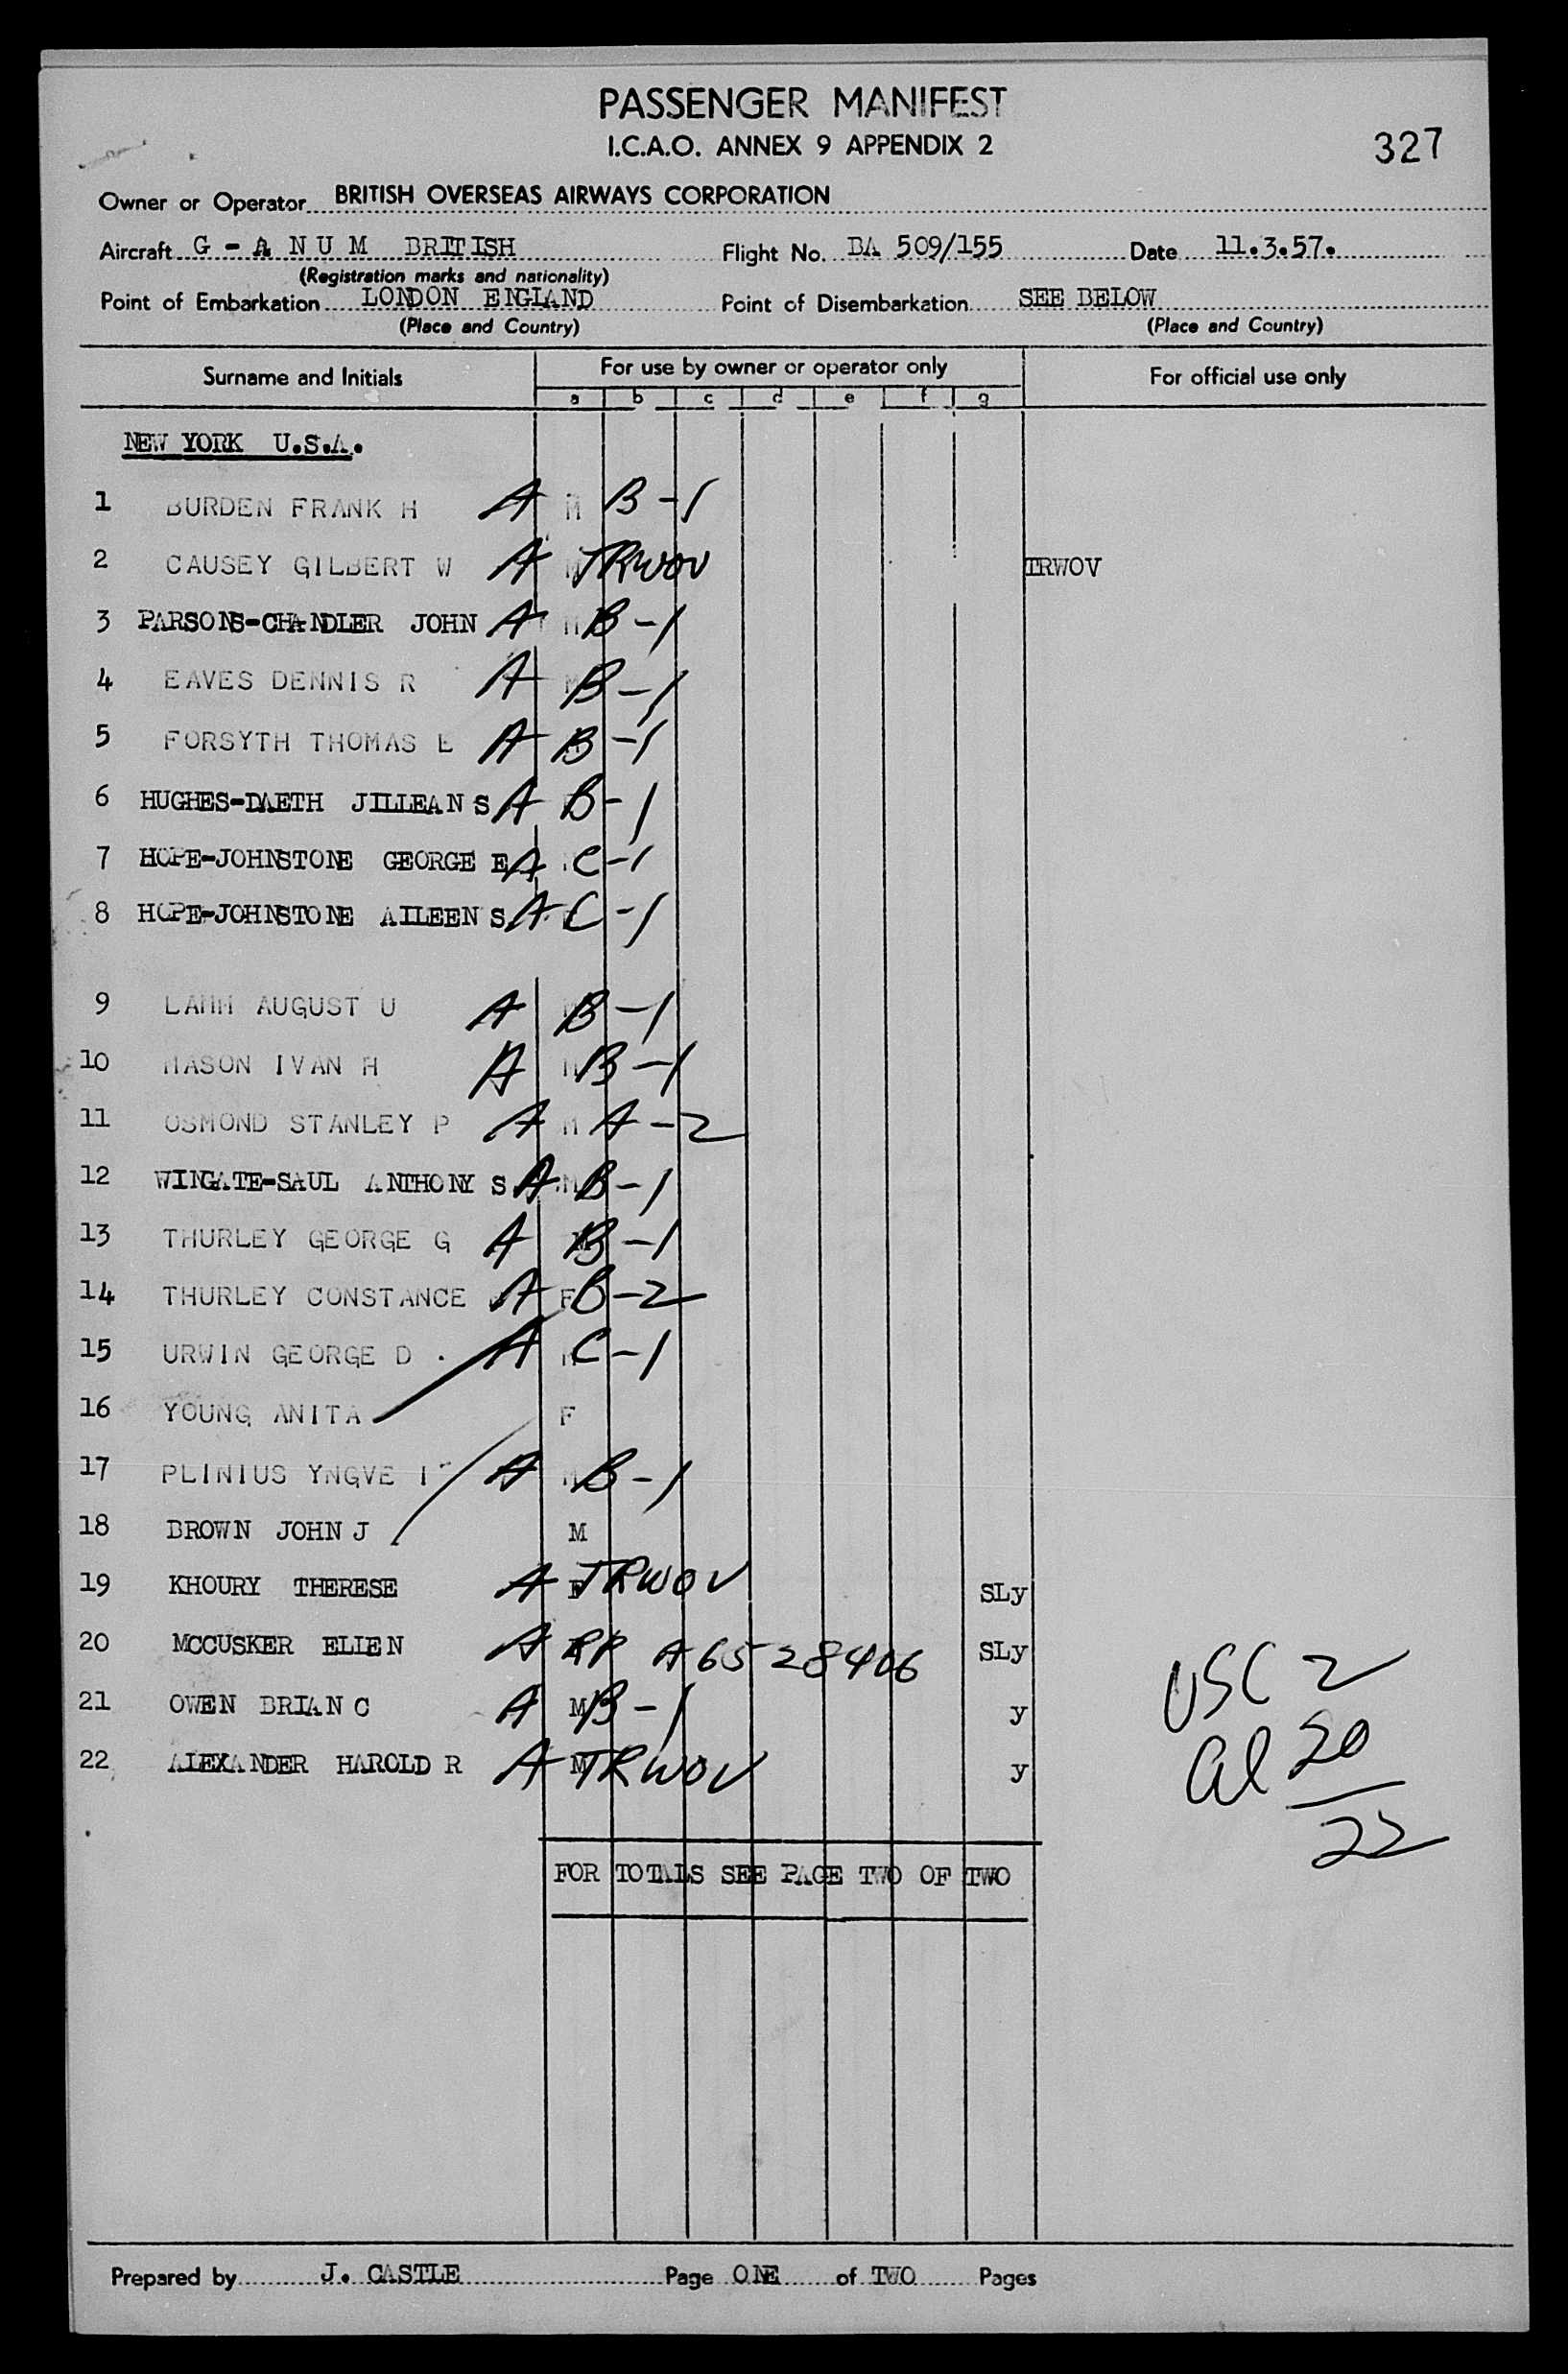 PASSENGER MANIFEST
I.C.A.O. ANNEX 9 APPENDIX 2
327
Owner or Operator BRITISH OVERSEAS AIRWAYS CORPORATION
Aircraft G - A N U M BRITISH Flight No. BA 509/155 Date 11.3.57.
(Registration marks and nationality)
Point of Embarkation LONDON ENGLAND Point of Disembarkation SEE BELOW
(Place and Country) (Place and Country)
Surname and Initials For use by owner or operator only For official use only
a b c d e f g
NEW YORK U.S.A.
1 BURDEN FRANK H A M B-1
2 CAUSEY GILBERT W A M TRWOV TRWOV
3 PARSONS-CHANDLER JOHN A M B-1
4 EAVES DENNIS R A M B-1
5 FORSYTH THOMAS E A B-1
6 HUGHES-DAETH JILLEAN S A B-1
7 HOPE-JOHNSTONE GEORGE E A C-1
8 HOPE-JOHNSTONE AILEEN S A C-1
9 LAMM AUGUST U A M B-1
10 MASON IVAN H A M B-1
11 OSMOND STANLEY P A M A-2
12 WINGATE-SAUL ANTHONY S A M B-1
13 THURLEY GEORGE G A M B-1
14 THURLEY CONSTANCE A F B-2
15 URWIN GEORGE D A M C-1
16 YOUNG ANITA F
17 PLINIUS YNGVE I A M B-1
18 BROWN JOHN J M
19 KHOURY THERESE A F TRWOV SLy
20 MCCUSKER ELLEN A RP A6528406 SLy
21 OWEN BRIAN C A M B-1 y
22 ALEXANDER HAROLD R A M TRWOV y
USC 2
al 20
22
FOR TOTALS SEE PAGE TWO OF TWO
Prepared by J. CASTLE Page ONE of TWO Pages